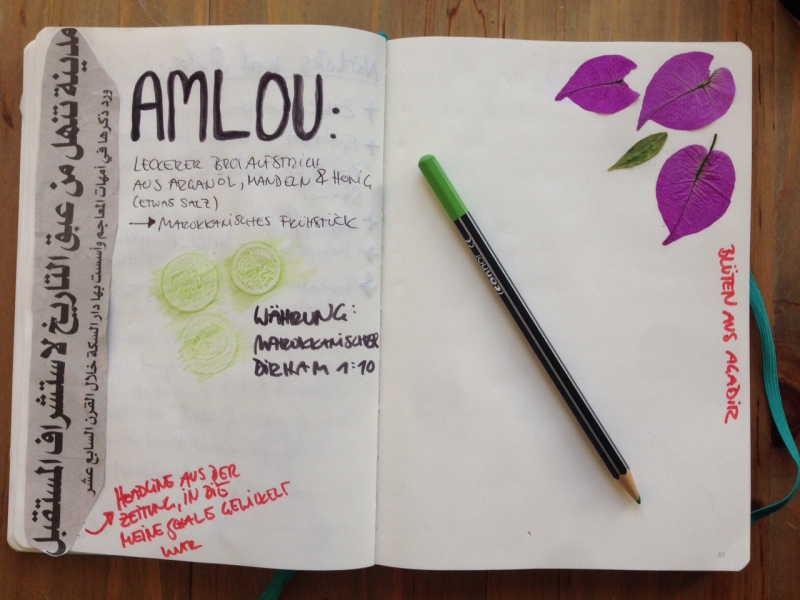 مدينة تنهل من عبق التاريخ لاستشراف المستقبل
ورد ذكرها في أمهات المعاجم وأسست بها دار السكة خلال القرن السابع عشر
AMLOU:
LECKERER BROTAUFSTRICH
AUS ARGANÖL, MANDELN & HONIG
(ETWAS SALZ)
→ MAROKKANISCHES FRÜHSTÜCK
WÄHRUNG:
MAROKKANISCHER
DIRHAM 1:10
HEADLINE AUS DER
ZEITUNG, IN DIE
MEINE SCHALE GEWICKELT
WAR
BLÜTEN AUS AGADIR
CONNOR